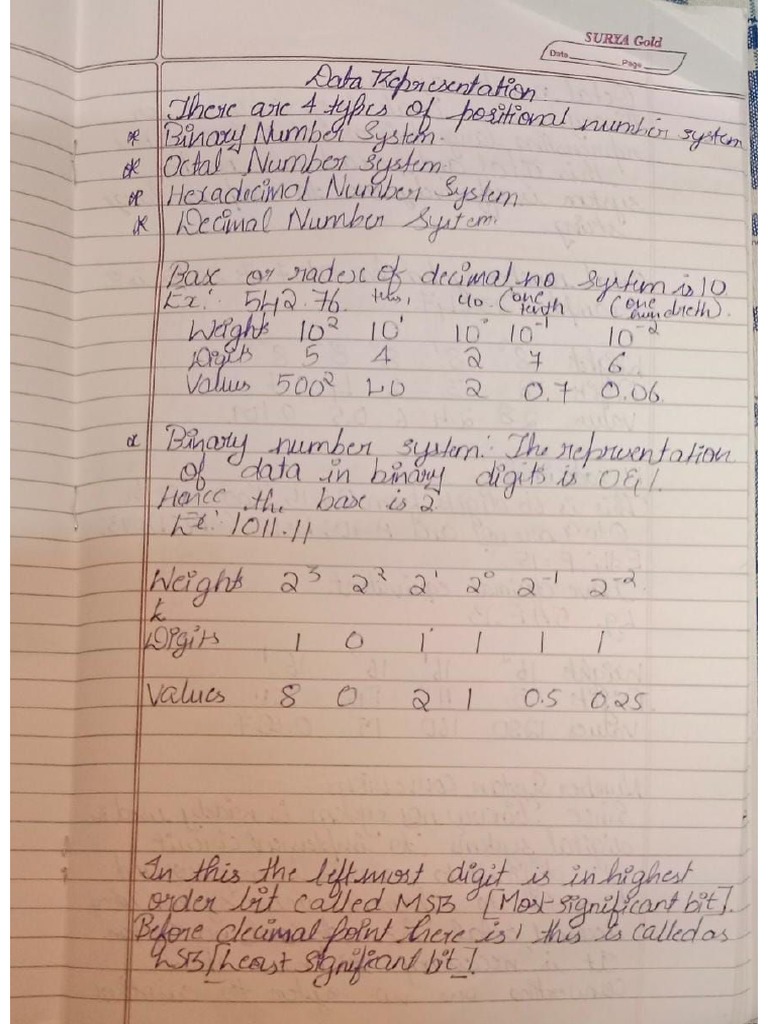 SURYA Gold
Date Page
Data Representation
There are 4 types of positional number system
* Binary Number System.
* Octal Number System
* Hexadecimal Number System
* Decimal Number System.
Base or radex of decimal no system is 10
Ex: 542.76 (one (one
tength hundreth).
Weights 10² 10¹ 10° 10⁻¹ 10⁻²
Digits 5 4 2 7 6
Values 500² 40 2 0.7 0.06
* Binary number system: The representation
of data in binary digits is 0&1.
Hence the base is 2
Ex: 1011.11
Weights 2³ 2² 2¹ 2° 2⁻¹ 2⁻²
Digits 1 0 1 1 1 1
Values 8 0 2 1 0.5 0.25
In this the leftmost digit is in highest
order bit called MSB [Most significant bit].
Before decimal point here is 1 this is called as
LSB [Least significant bit].